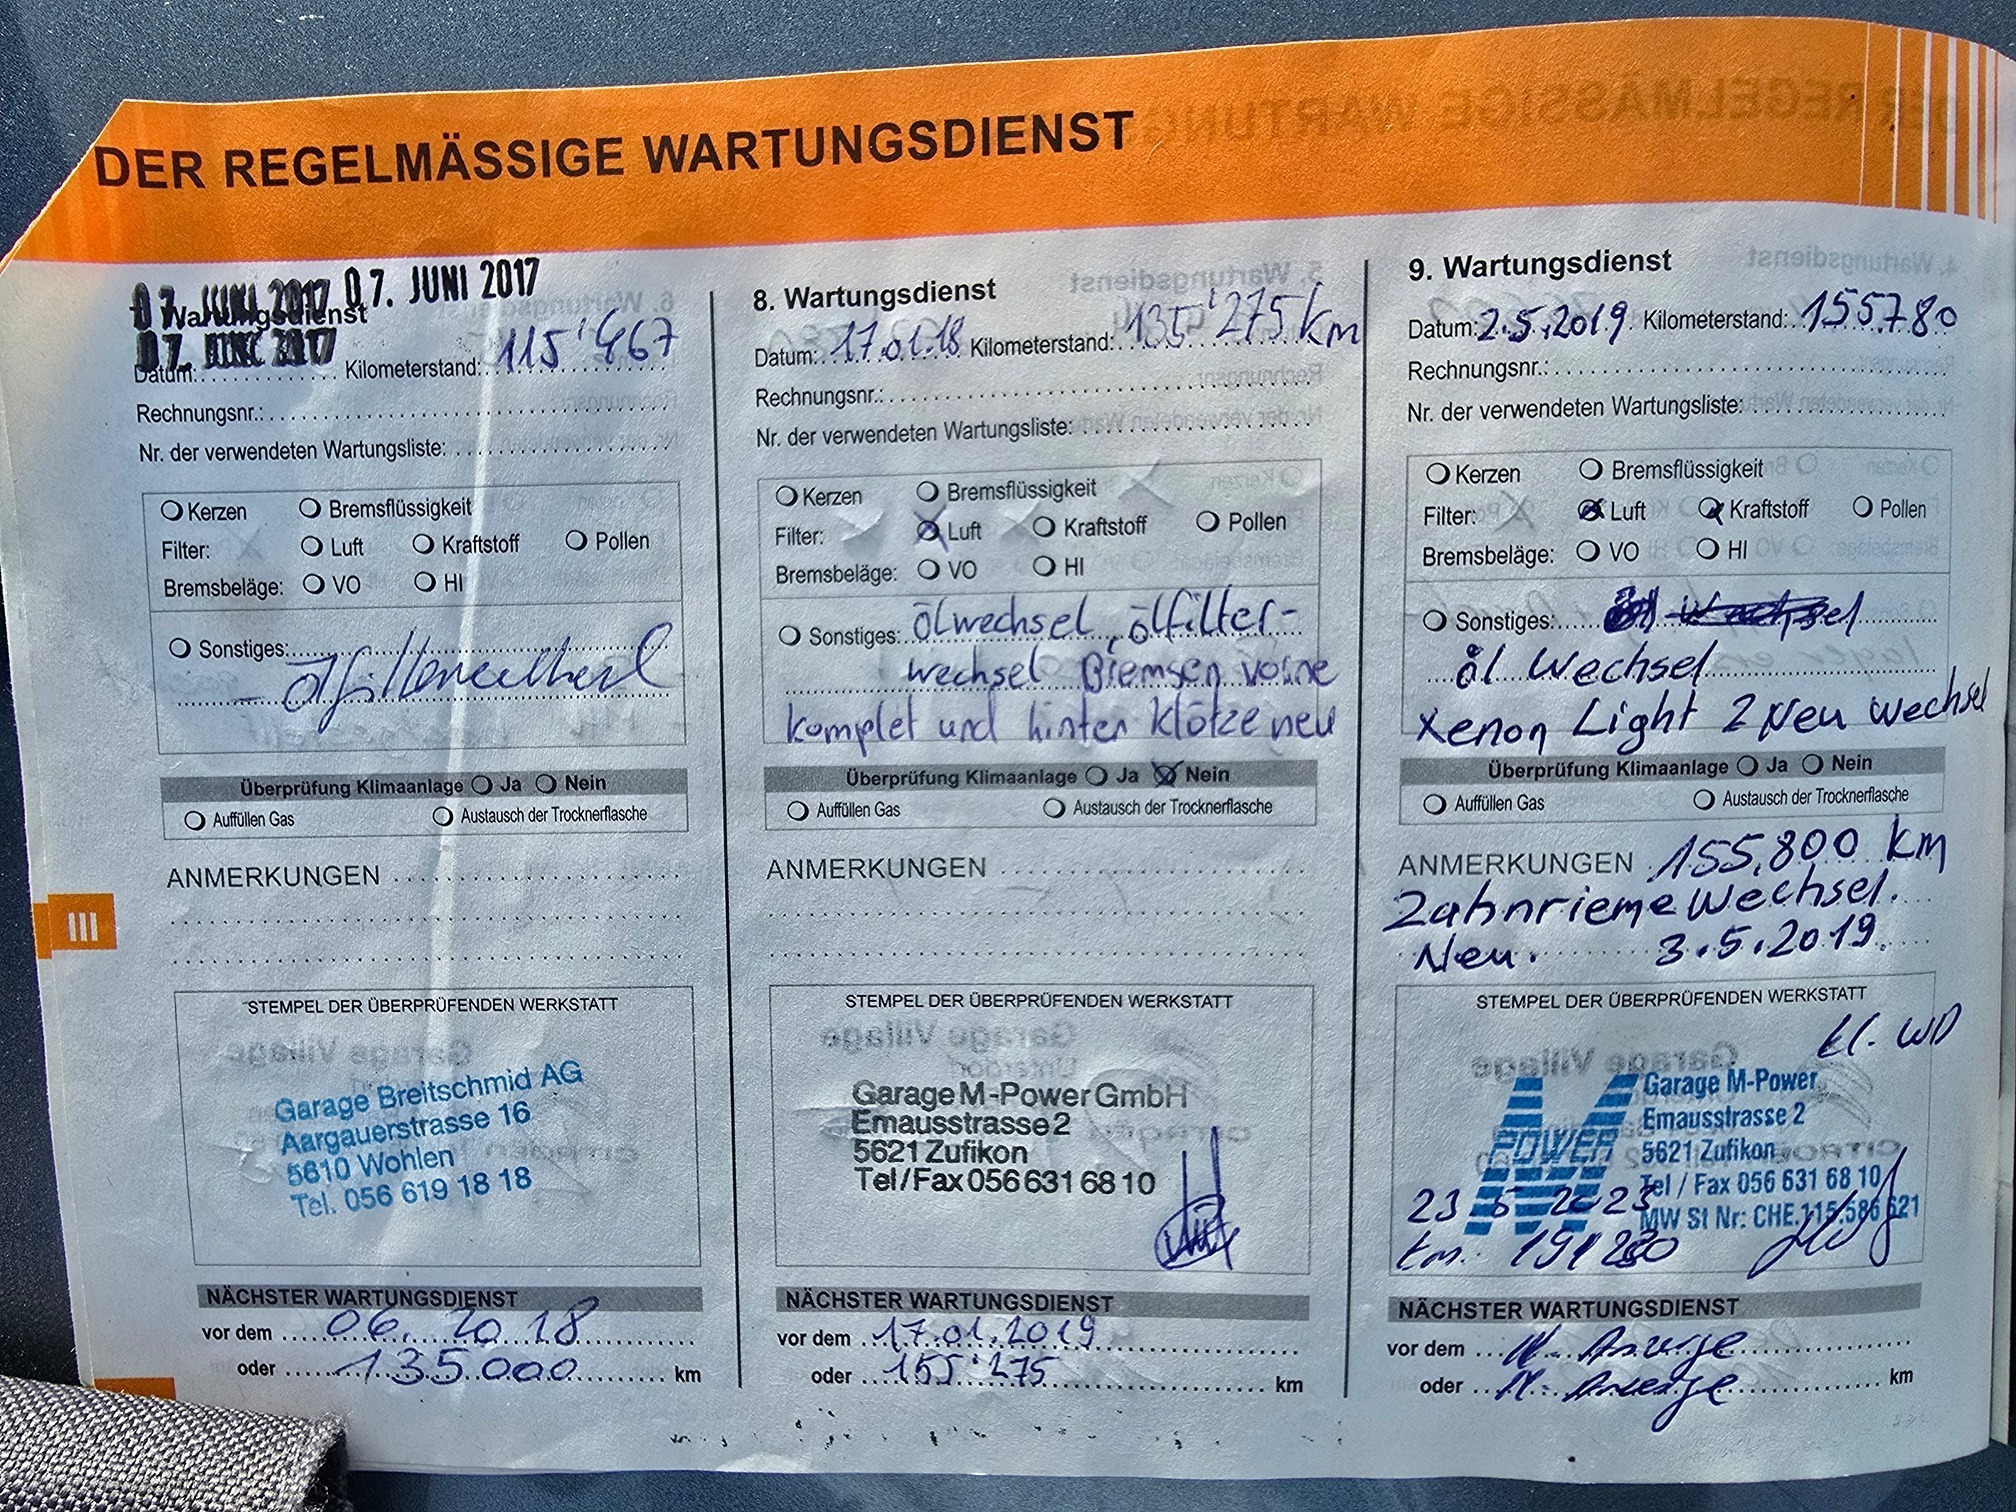 DER REGELMÄSSIGE WARTUNGSDIENST
07. JUNI 2017 07. JUNI 2017
Wartungsdienst
07. JUNI 2017
Datum: Kilometerstand: 115'467
Rechnungsnr.:
Nr. der verwendeten Wartungsliste:
Kerzen Bremsflüssigkeit
Filter: Luft Kraftstoff Pollen
Bremsbeläge: VO HI
Sonstiges:
Überprüfung Klimaanlage Ja Nein
Auffüllen Gas Austausch der Trocknerflasche
ANMERKUNGEN
STEMPEL DER ÜBERPRÜFENDEN WERKSTATT
Garage Breitschmid AG
Aargauerstrasse 16
5610 Wohlen
Tel. 056 619 18 18
NÄCHSTER WARTUNGSDIENST
vor dem 06. 2018
oder 135.000 km
8. Wartungsdienst
Datum: 17.01.18 Kilometerstand: 135'275 km
Rechnungsnr.:
Nr. der verwendeten Wartungsliste:
Kerzen Bremsflüssigkeit
Filter: Luft Kraftstoff Pollen
Bremsbeläge: VO HI
Sonstiges: Ölwechsel, ölfilter-
wechsel Bremsen vorne
komplet und hinten Klötze neu
Überprüfung Klimaanlage Ja Nein
Auffüllen Gas Austausch der Trocknerflasche
ANMERKUNGEN
STEMPEL DER ÜBERPRÜFENDEN WERKSTATT
Garage M-Power GmbH
Emausstrasse 2
5621 Zufikon
Tel/Fax 056 631 68 10
NÄCHSTER WARTUNGSDIENST
vor dem 17.01.2019
oder 155'275 km
9. Wartungsdienst
Datum: 2.5.2019 Kilometerstand: 155780
Rechnungsnr.:
Nr. der verwendeten Wartungsliste:
Kerzen Bremsflüssigkeit
Filter: Luft Kraftstoff Pollen
Bremsbeläge: VO HI
Sonstiges:
öl Wechsel
Xenon Light 2 Neu Wechsel
Überprüfung Klimaanlage Ja Nein
Auffüllen Gas Austausch der Trocknerflasche
ANMERKUNGEN 155,800 km
Zahnrieme Wechsel.
Neu. 3.5.2019.
STEMPEL DER ÜBERPRÜFENDEN WERKSTATT
kl. WD
M POWER
Garage M-Power
Emausstrasse 2
5621 Zufikon
Tel / Fax 056 631 68 10
MW St Nr: CHE.115.586 621
23.5 2023
km.
NÄCHSTER WARTUNGSDIENST
vor dem Anzeige
oder Anzeige km
III